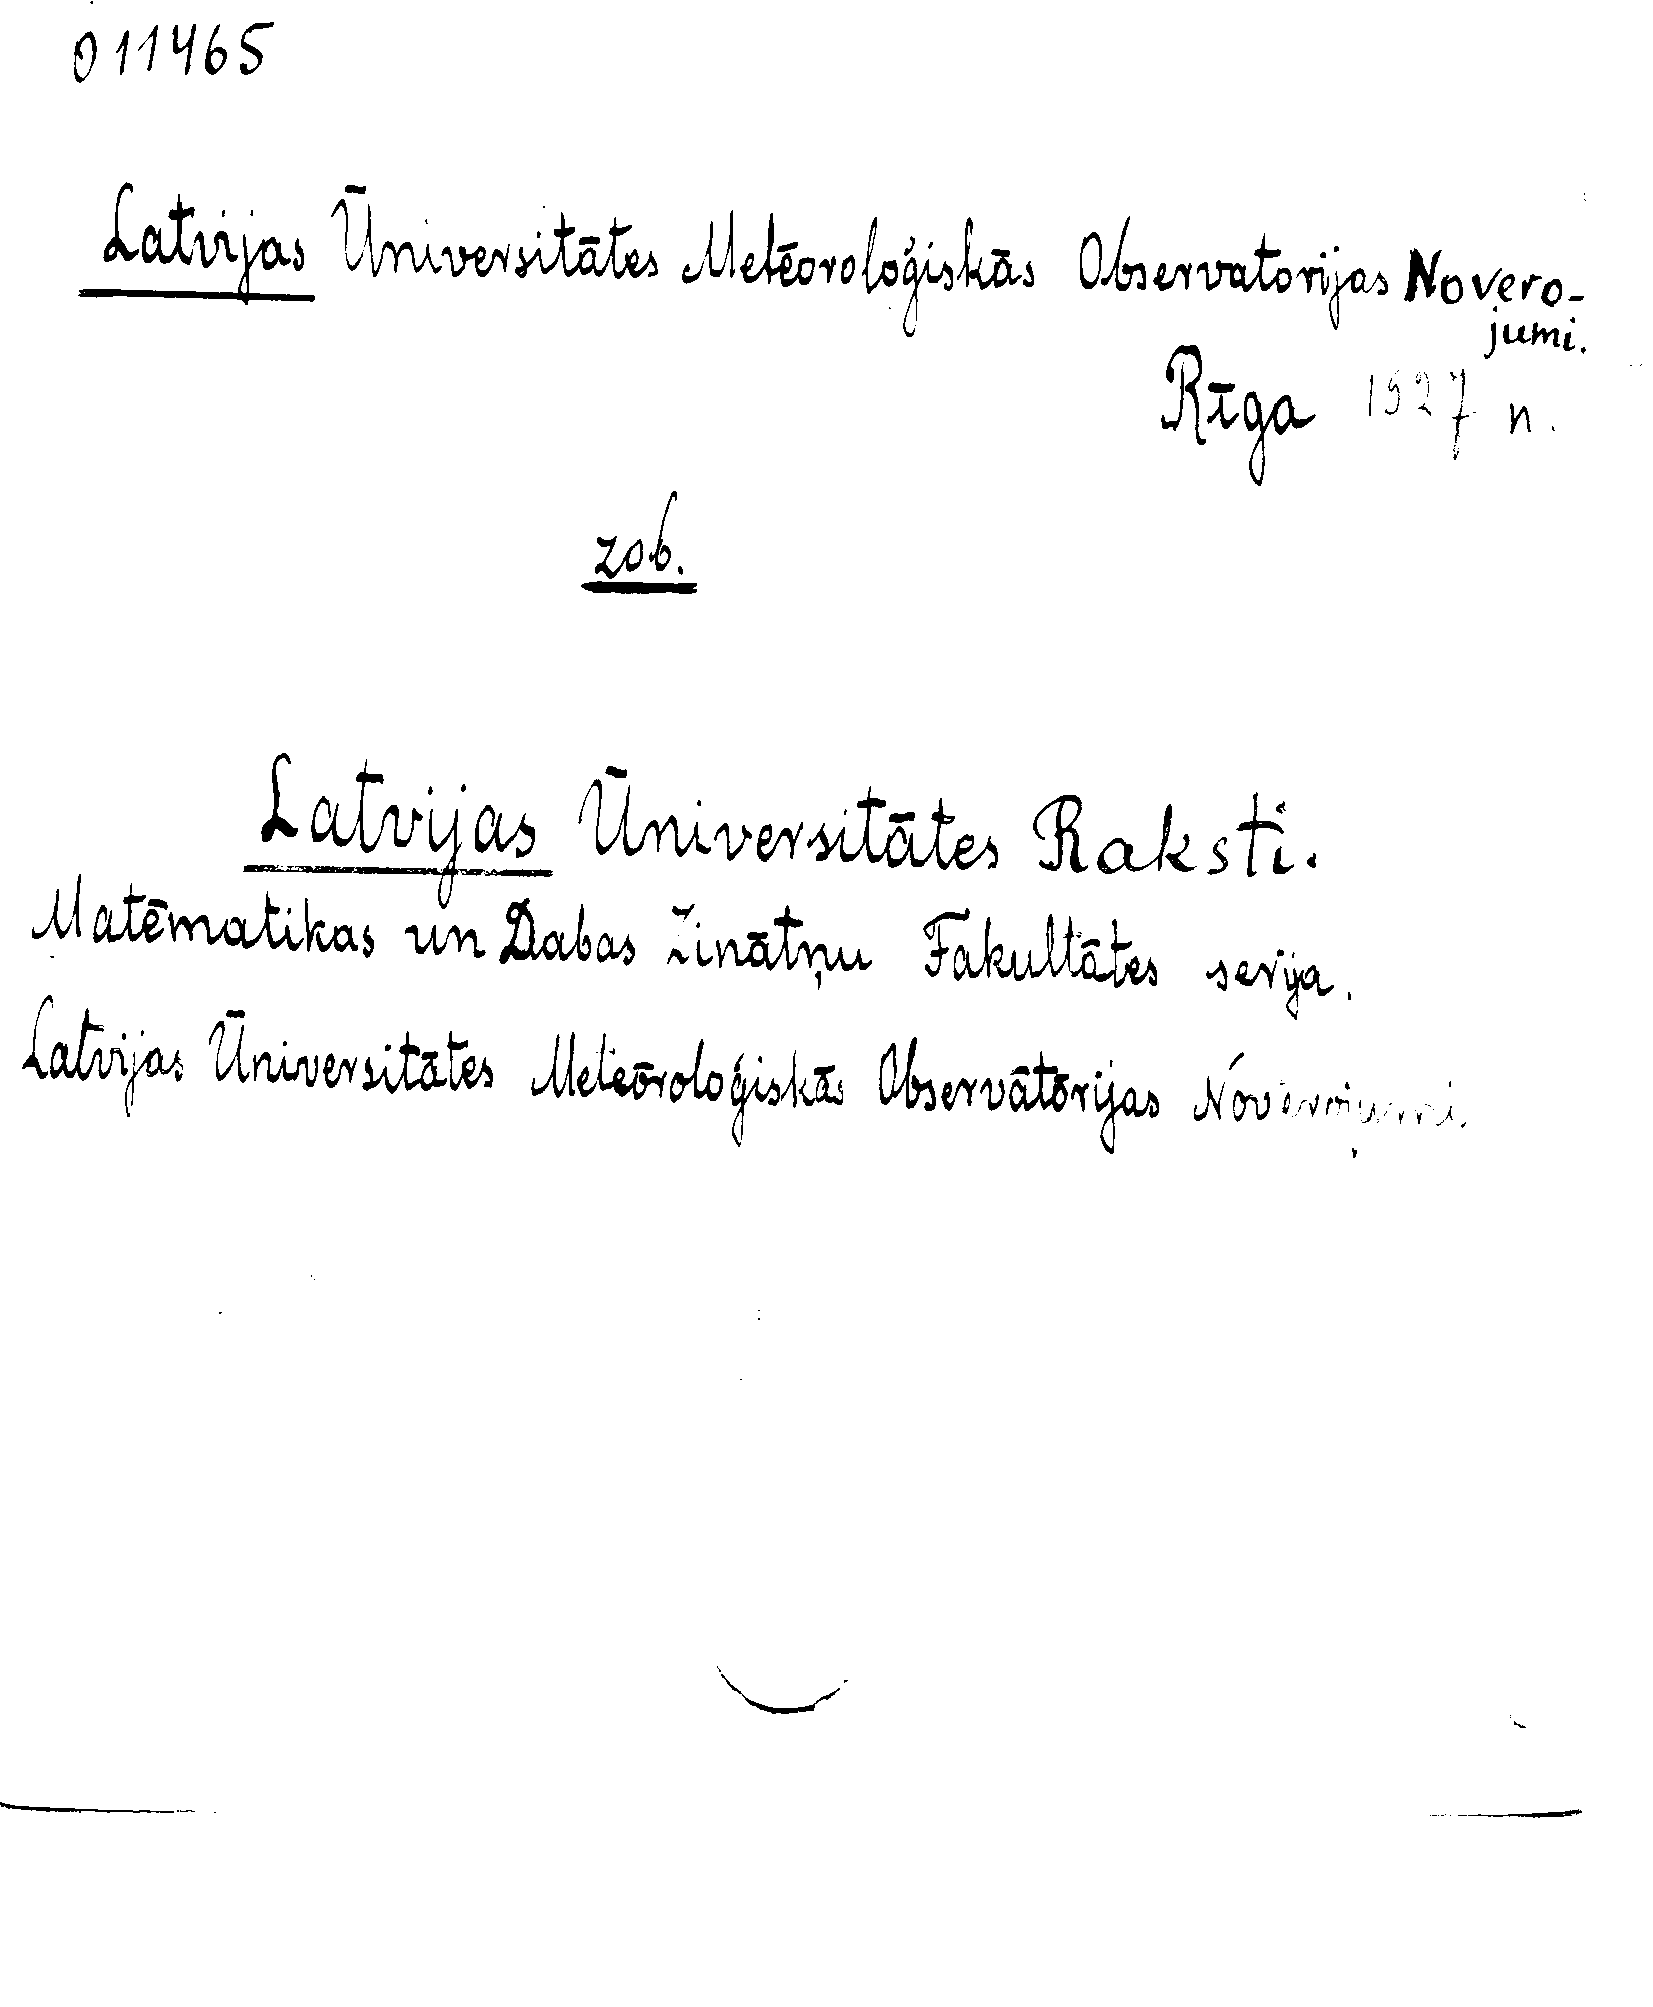 011465
Latvijas Ūniversitātes Metēoroloģiskās Observatorijas Novero-
jumi.
Rīga 1927 n.
zob.
Latvijas Ūniversitātes Raksti.
Matēmatikas un Dabas Zinātņu Fakultātes serija.
Latvijas Ūniversitātes Meteōroloģiskās Observātōrijas Novērojumi.